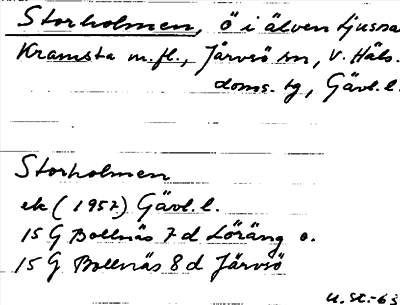 Storholmen, ö i älven Ljusna
Kramsta m.fl., Järvsö sn, V. Häls.
doms. tg, Gävl. l.
Storholmen
ek (1957) Gävl. l.
15 G Bollnäs 7 d Löräng o.
15 G Bollnäs 8 d Järvsö
U.St.-63